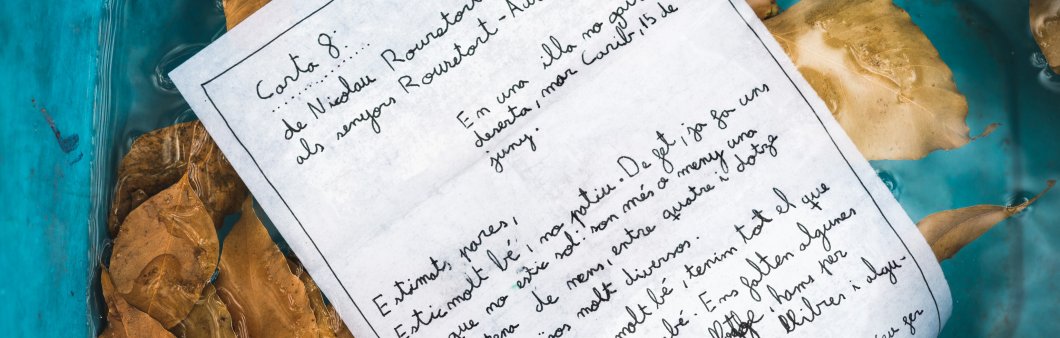 Carta 8:
de Nicolau Rouretort
als senyors Rouretort-
En una illa no gaire
deserta, mar Carib, 15 de
juny.
Estimats pares,
Estic molt bé, no patiu. De fet, ja fa uns
que no estic sol: son més o meny una
de nens, entre quatre i dotze
molt diversos.
molt bé, tenim tot el que
bé. Ens falten algunes
hams per
llibres i algu-
fer